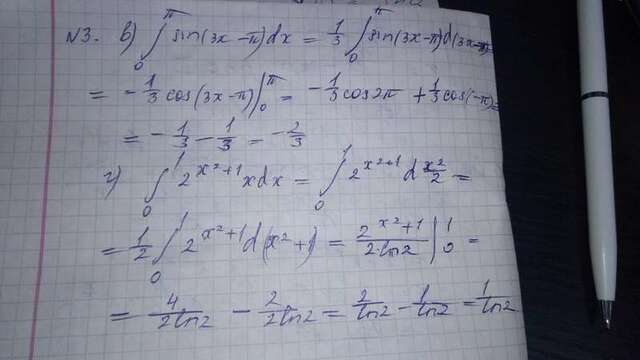 №3. в) ∫₀^π sin(3x-π)dx = 1/3 ∫₀^π sin(3x-π)d(3x-π)=
= -1/3 cos(3x-π)|₀^π = -1/3 cos2π + 1/3 cos(-π)=
= -1/3 - 1/3 = -2/3
г) ∫₀^1 2^(x²+1) xdx = ∫₀^1 2^(x²+1) d x²/2 =
= 1/2 ∫₀^1 2^(x²+1) d(x²+1) = 2^(x²+1)/(2ln2) |₀^1 =
= 4/(2ln2) - 2/(2ln2) = 2/ln2 - 1/ln2 = 1/ln2